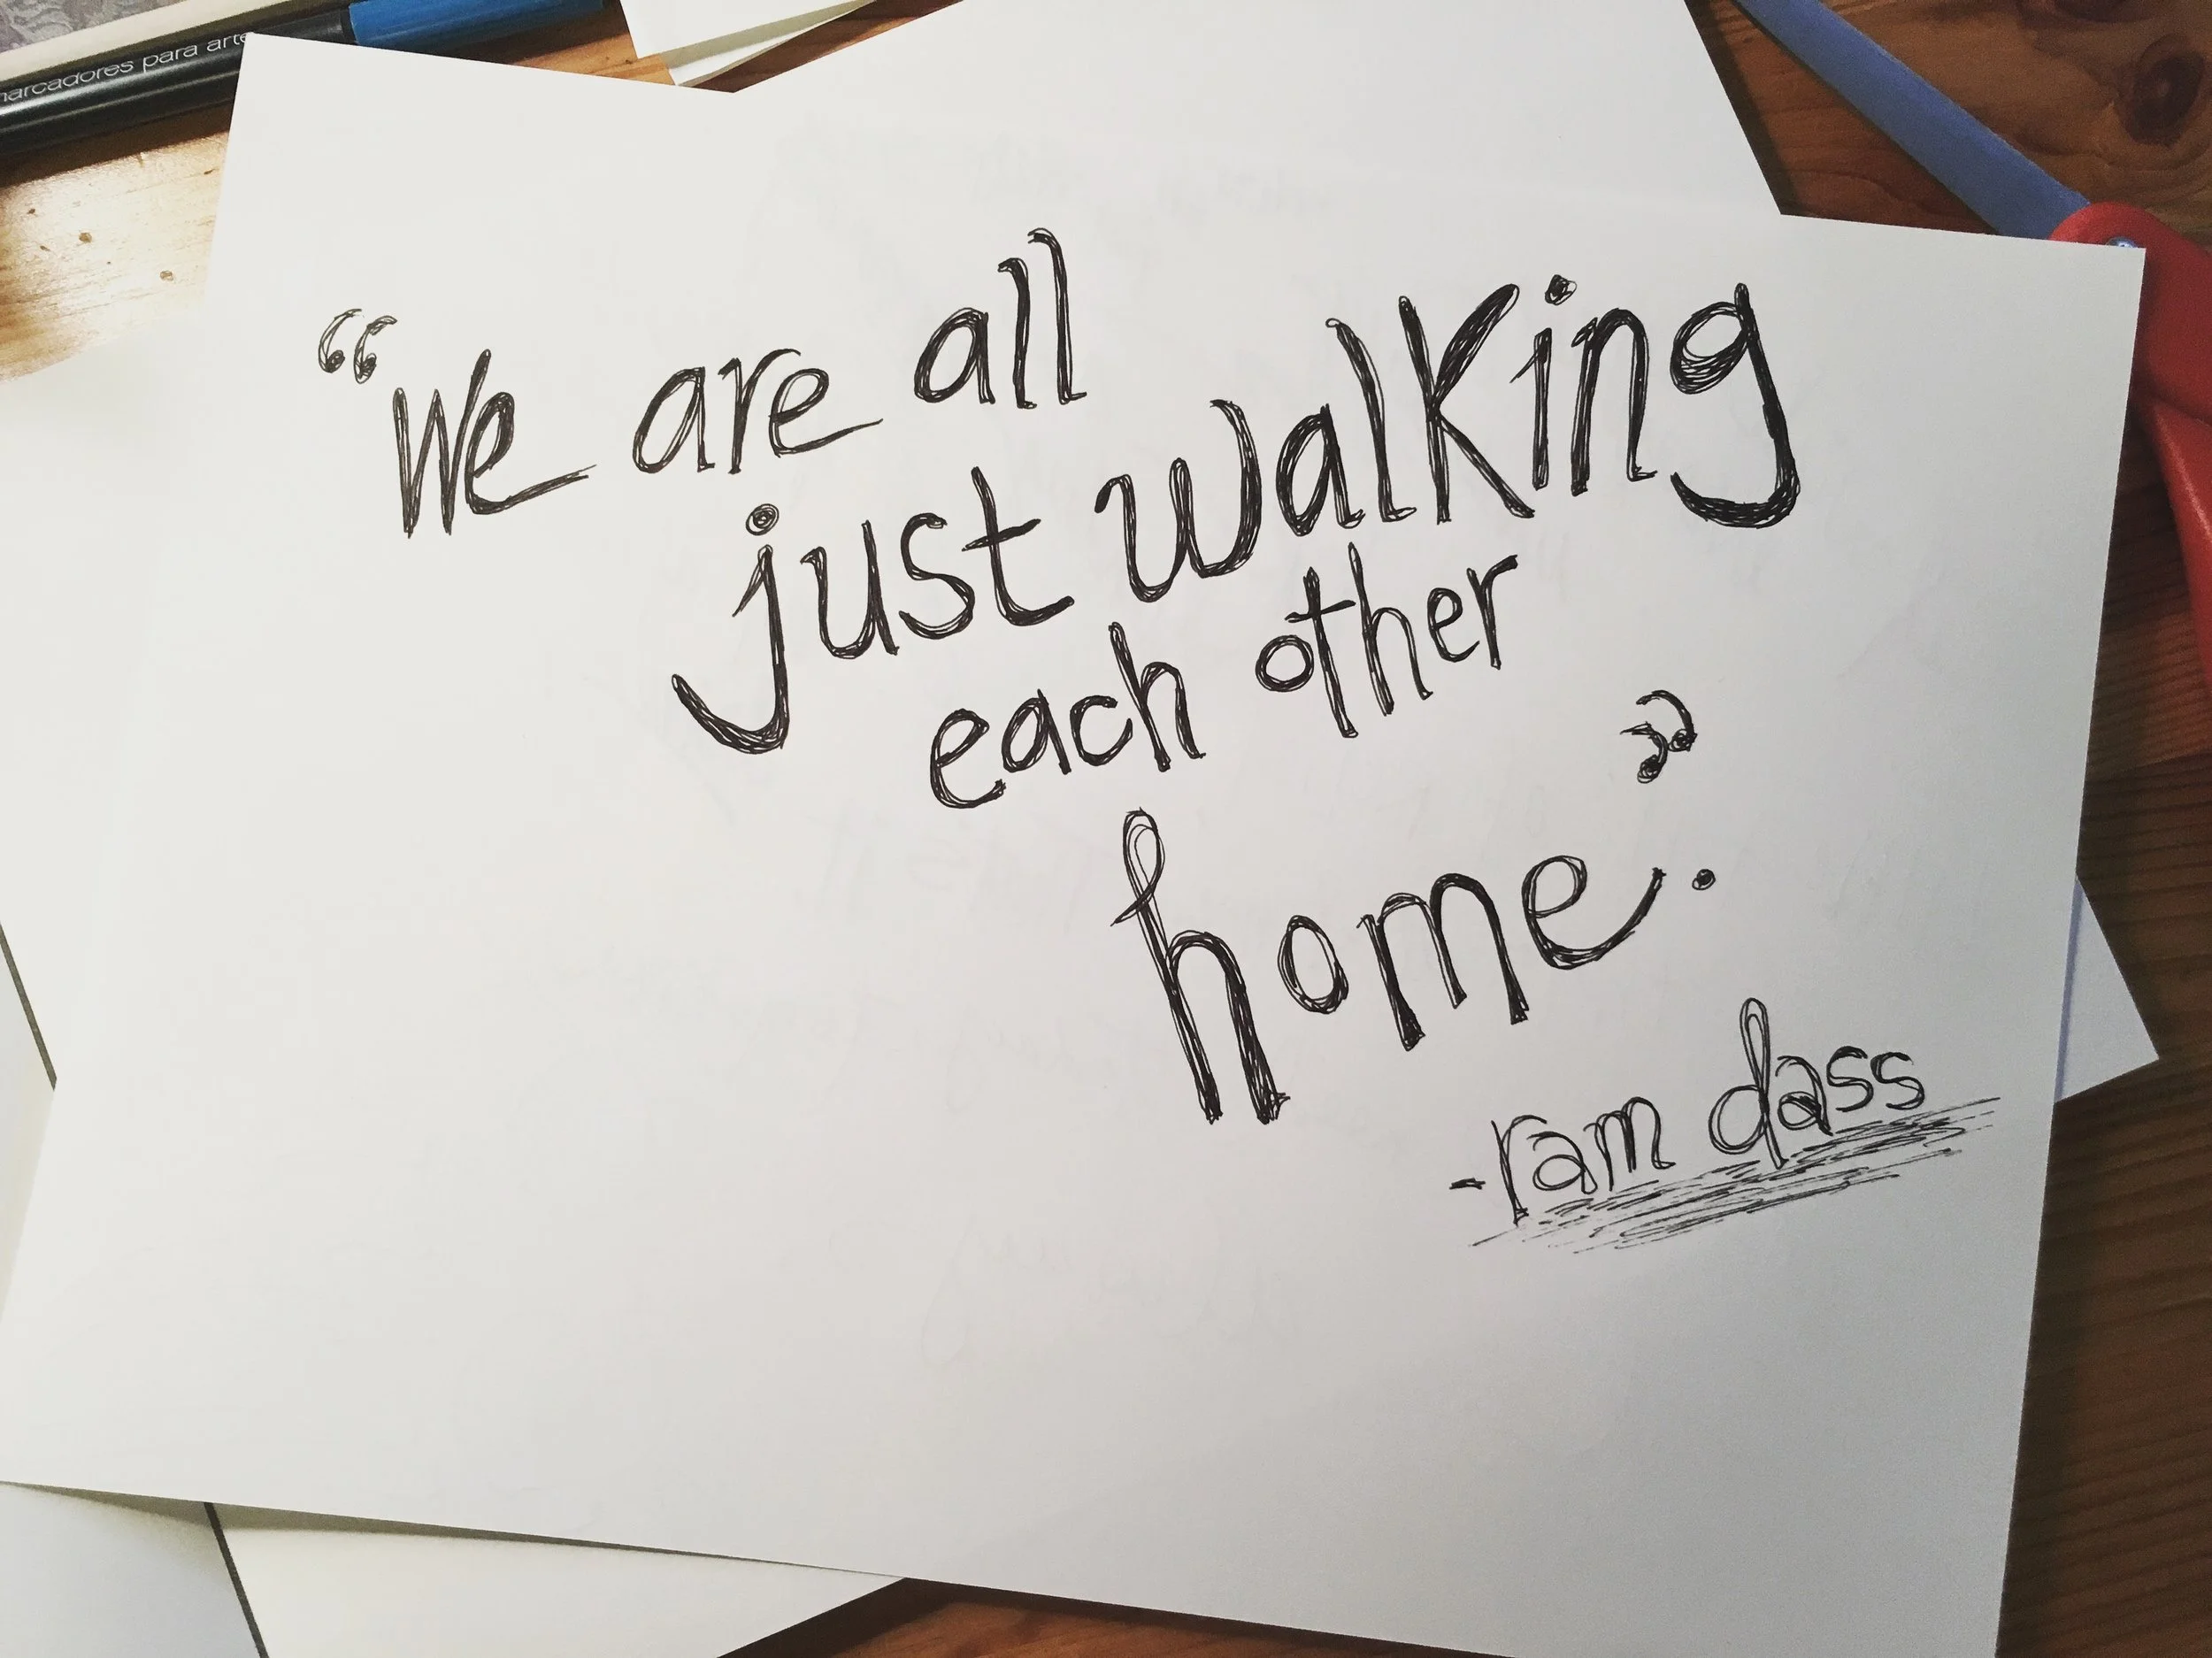 marcadores para arte
“We are all
just walking
each other
home.”
-ram dass